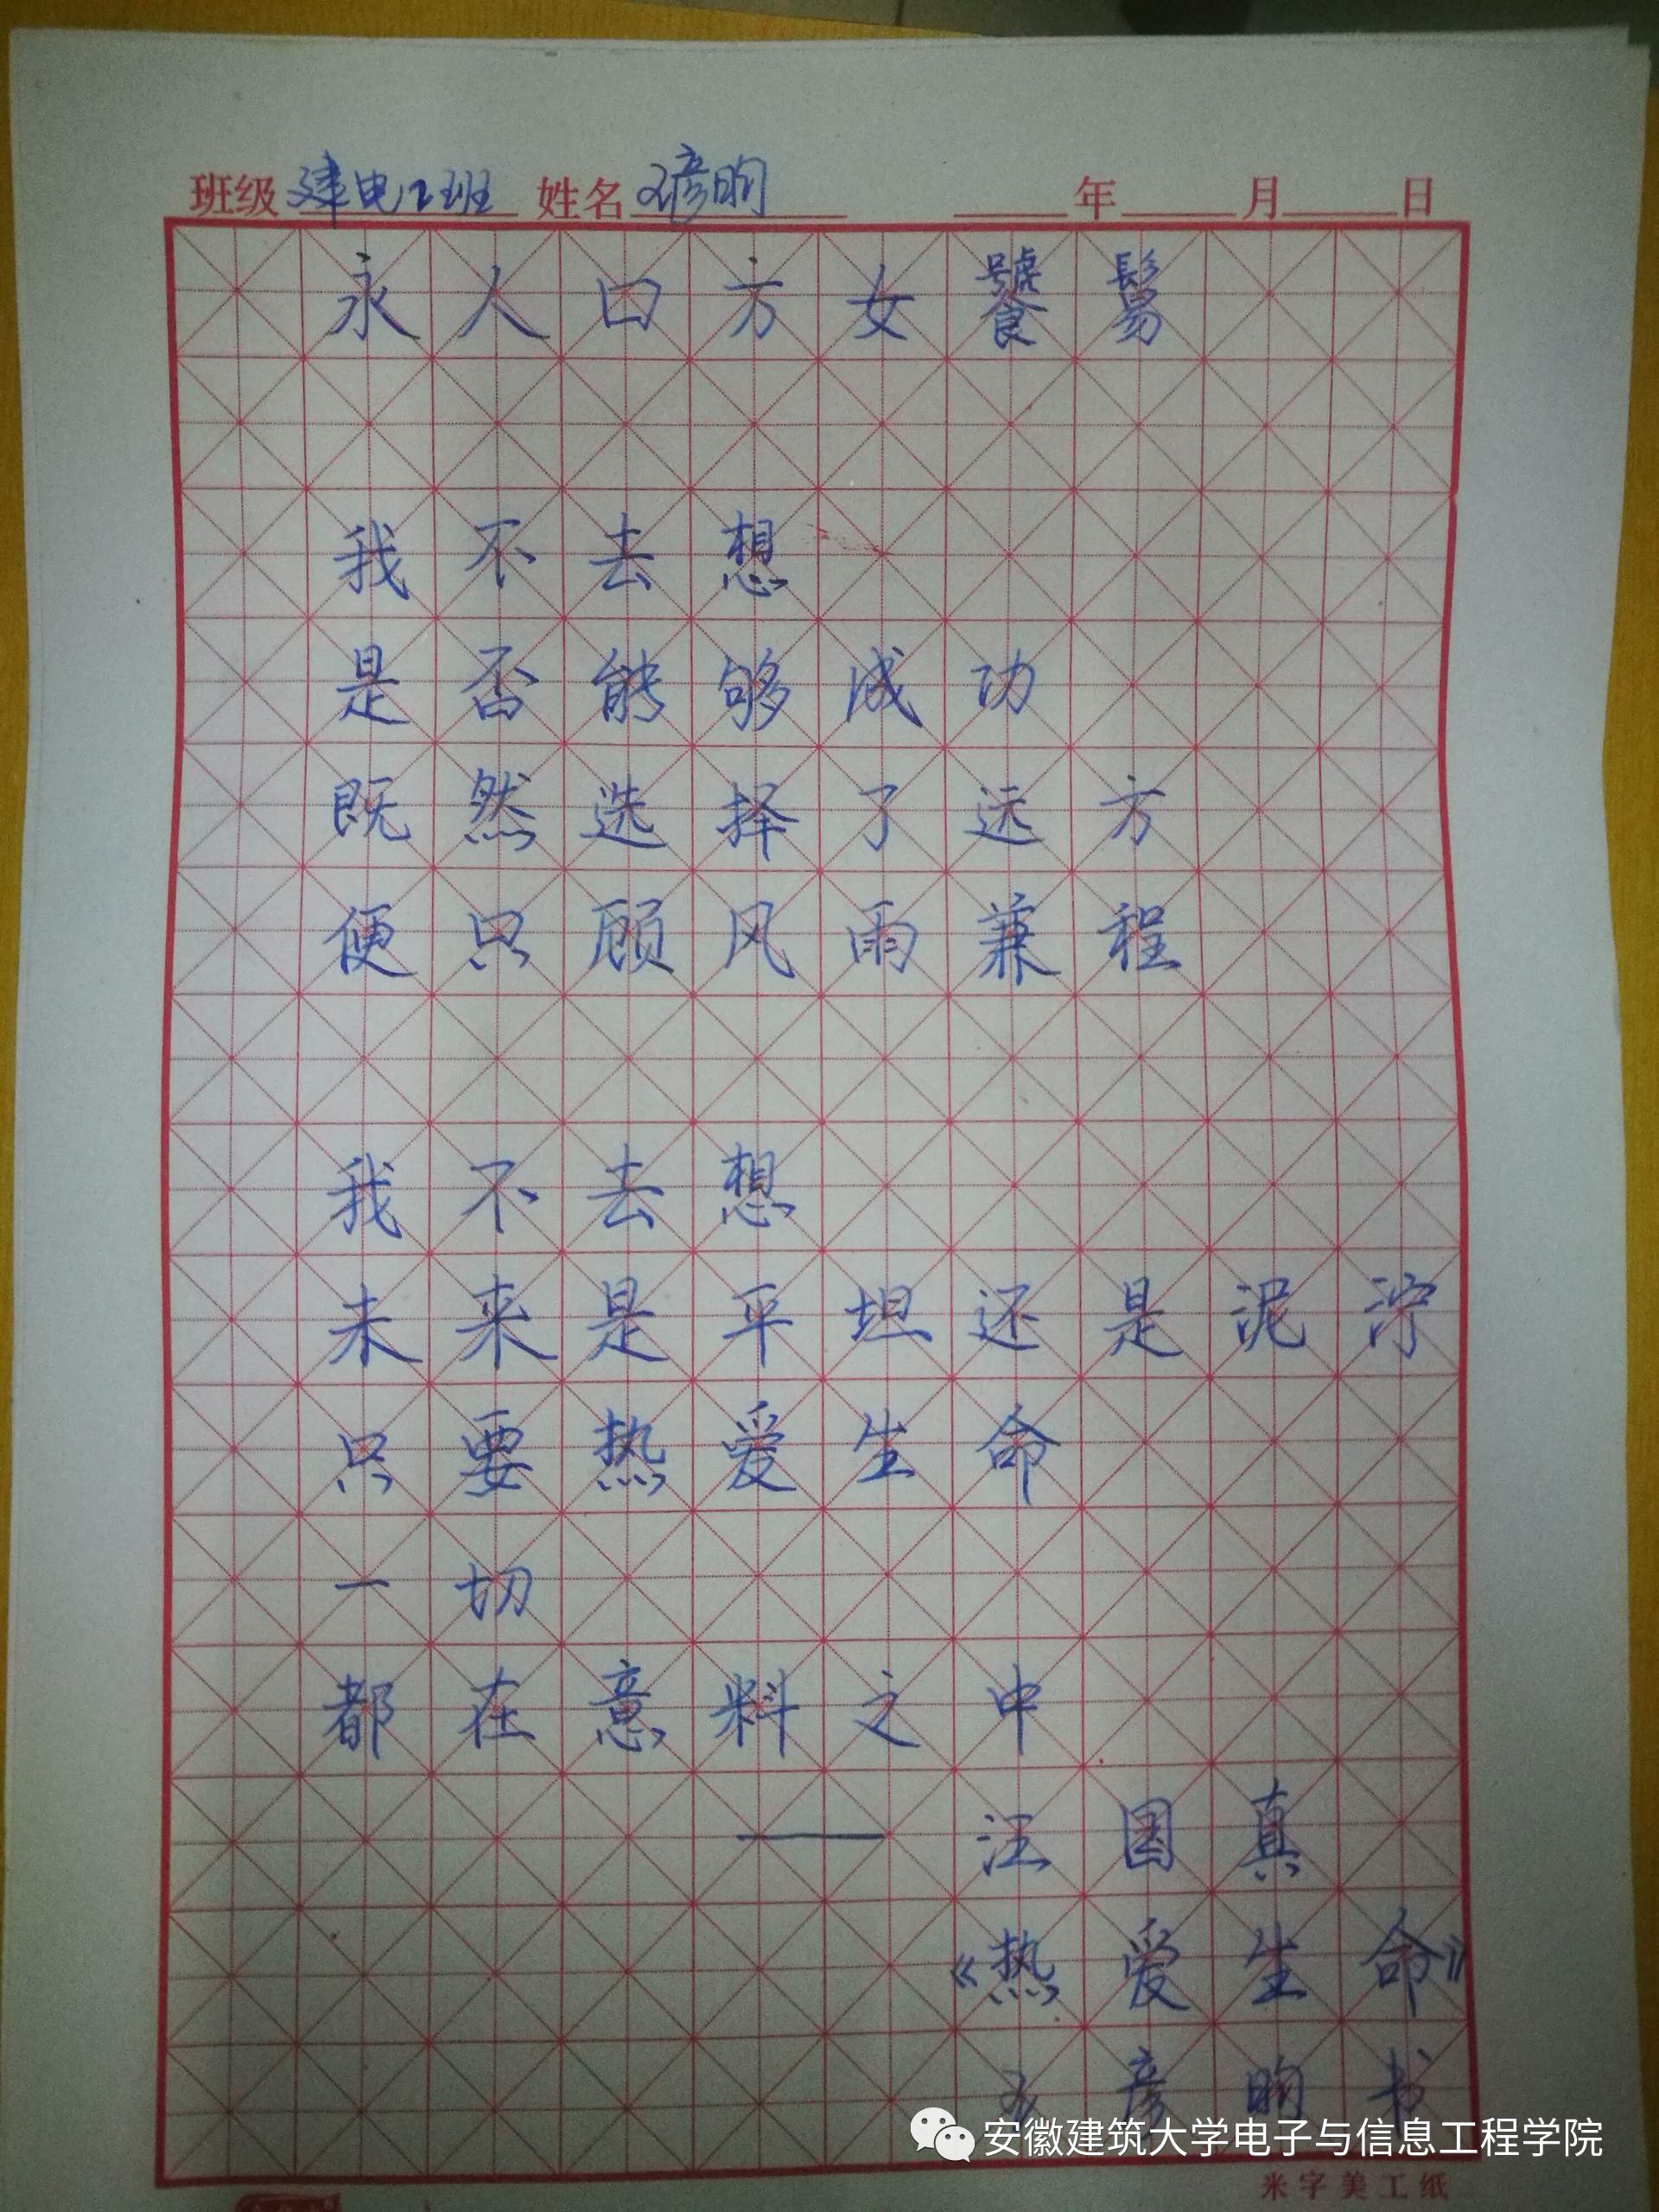 班级 建电12班 姓名 彦昫 年 月 日
永人口方女饕鬄
我不去想
是否能够成功
既然选择了远方
便只顾风雨兼程
我不去想
未来是平坦还是泥泞
只要热爱生命
一切
都在意料之中
——汪国真
《热爱生命》
彦昫书
安徽建筑大学电子与信息工程学院
米字美工纸